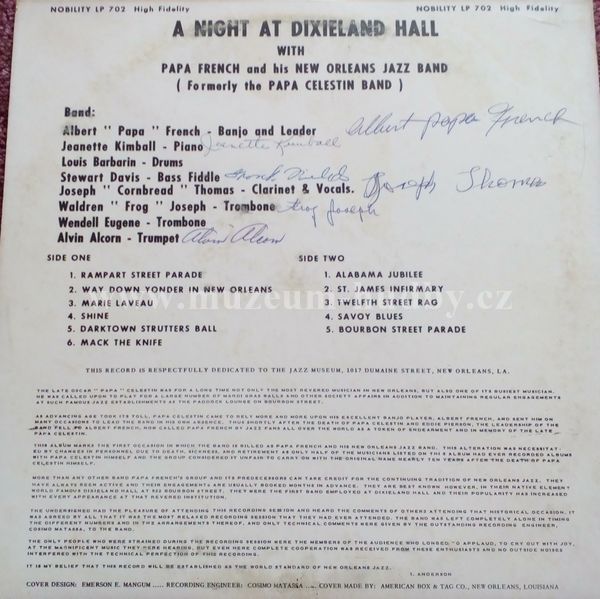 NOBILITY LP 702 High Fidelity NOBILITY LP 702 High Fidelity
A NIGHT AT DIXIELAND HALL
WITH
PAPA FRENCH and his NEW ORLEANS JAZZ BAND
( Formerly the PAPA CELESTIN BAND )
Band:
Albert " Papa " French - Banjo and Leader Albert Papa French
Jeanette Kimball - Piano Jeanette Kimball
Louis Barbarin - Drums
Stewart Davis - Bass Fiddle Frank
Joseph " Cornbread " Thomas - Clarinet & Vocals. Joseph Thomas
Waldren " Frog " Joseph - Trombone Frog Joseph
Wendell Eugene - Trombone
Alvin Alcorn - Trumpet Alvin Alcorn
SIDE ONE SIDE TWO
1. RAMPART STREET PARADE 1. ALABAMA JUBILEE
2. WAY DOWN YONDER IN NEW ORLEANS 2. ST. JAMES INFIRMARY
3. MARIE LAVEAU 3. TWELFTH STREET RAG
4. SHINE 4. SAVOY BLUES
5. DARKTOWN STRUTTERS BALL 5. BOURBON STREET PARADE
6. MACK THE KNIFE
THIS RECORD IS RESPECTFULLY DEDICATED TO THE JAZZ MUSEUM, 1017 DUMAINE STREET, NEW ORLEANS, LA.
THE LATE OSCAR " PAPA " CELESTIN WAS FOR A LONG TIME NOT ONLY THE MOST REVERED MUSICIAN IN NEW ORLEANS, BUT ALSO ONE OF ITS BUSIEST MUSICIAN.
HE WAS CALLED UPON TO PLAY FOR A LARGE NUMBER OF MARDI GRAS BALLS AND OTHER SOCIETY AFFAIRS IN ADDITION TO MAINTAINING REGULAR ENGAGEMENTS
AT SUCH FAMOUS JAZZ ESTABLISHMENTS AS THE PADDOCK LOUNGE ON BOURBON STREET.
AS ADVANCING AGE TOOK ITS TOLL, PAPA CELESTIN CAME TO RELY MORE AND MORE UPON HIS EXCELLENT BANJO PLAYER, ALBERT FRENCH, AND SENT HIM ON
MANY OCCASIONS TO LEAD THE BAND IN HIS OWN ABSENCE. THUS SHORTLY AFTER THE DEATH OF PAPA CELESTIN AND EDDIE PIERSON, THE LEADERSHIP OF THE
BAND FELL TO ALBERT FRENCH, NOW CALLED PAPA FRENCH BY JAZZ FANS ALL OVER THE WORLD AS A TOKEN OF ENDEARMENT AND IN MEMORY OF THE LATE
PAPA CELESTIN.
THIS ALBUM MARKS THE FIRST OCCASION IN WHICH THE BAND IS BILLED AS PAPA FRENCH AND HIS NEW ORLEANS JAZZ BAND. THIS ALTERATION WAS NECESSITAT-
ED BY CHANGES IN PERSONNEL DUE TO DEATH, SICKNESS, AND RETIREMENT AS ONLY HALF OF THE MUSICIANS LISTED ON THIS ALBUM HAD EVER RECORDED ALBUMS
WITH PAPA CELESTIN HIMSELF AND THE GROUP CONSIDERED IT UNFAIR TO CARRY ON WITH THE ORIGINAL NAME NEARLY TEN YEARS AFTER THE DEATH OF PAPA
CELESTIN HIMSELF.
MORE THAN ANY OTHER BAND PAPA FRENCH'S GROUP AND ITS PREDECESSORS CAN TAKE CREDIT FOR THE CONTINUING TRADITION OF NEW ORLEANS JAZZ. THEY
HAVE ALWAYS BEEN ACTIVE AND THEIR ENGAGEMENTS ARE USUALLY BOOKED MONTHS IN ADVANCE. THEY ARE BEST KNOWN, HOWEVER, IN THEIR NATIVE ELEMENT
WORLD FAMOUS DIXIELAND HALL AT 522 BOURBON STREET. THEY WERE THE FIRST BAND EMPLOYED AT DIXIELAND HALL AND THEIR POPULARITY HAS INCREASED
WITH EVERY APPEARANCE AT THAT REVERED INSTITUTION.
THE UNDERSIGNED HAD THE PLEASURE OF ATTENDING THIS RECORDING SESSION AND HEARD THE COMMENTS OF OTHERS ATTENDING THAT HISTORICAL OCCASION. IT
WAS AGREED BY ALL THAT IT WAS THE MOST RELAXED RECORDING SESSION THAT THEY HAD EVER ATTENDED. THE BAND WAS LEFT COMPLETELY ALONE IN TIMING
THE DIFFERENT NUMBERS AND IN THE ARRANGEMENTS THEREOF, AND ONLY TECHNICAL COMMENTS WERE GIVEN BY THE OUTSTANDING RECORDING ENGINEER,
COSIMO MATASSA, TO THE BAND.
THE ONLY PEOPLE WHO WERE STRAINED DURING THE RECORDING SESSION WERE THE MEMBERS OF THE AUDIENCE WHO LONGED TO APPLAUD, TO CRY OUT WITH JOY,
AT THE MAGNIFICENT MUSIC THEY WERE HEARING, BUT EVEN HERE COMPLETE COOPERATION WAS RECEIVED FROM THESE ENTHUSIASTS AND NO OUTSIDE NOISES
INTERFERED WITH THE TECHNICAL PERFECTION OF THIS RECORDING.
IT IS MY BELIEF THAT THIS RECORD WILL BE ESTABLISHED AS THE WORLD STANDARD OF NEW ORLEANS JAZZ.
I. ANDERSON
COVER DESIGN: EMERSON E. MANGUM ..... RECORDING ENGINEER: COSIMO MATASSA ... COVER MADE BY: AMERICAN BOX & TAG CO., NEW ORLEANS, LOUISIANA